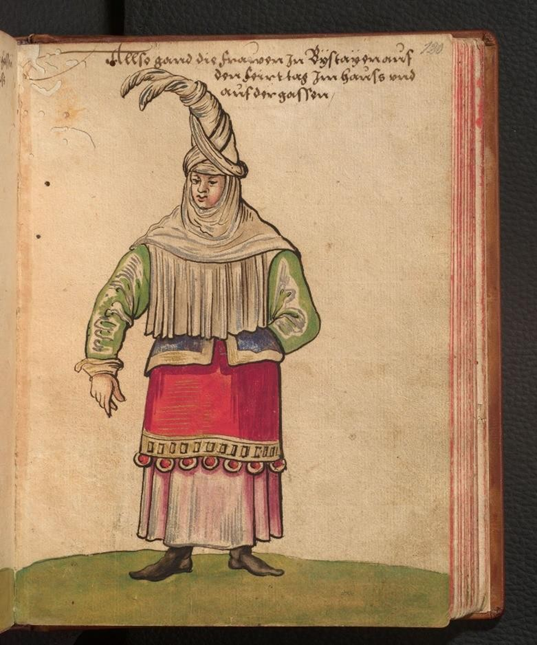 Allso gand die frawen In Bystayen auf
den feirttag Im hauss vnd
auf der gassen
100